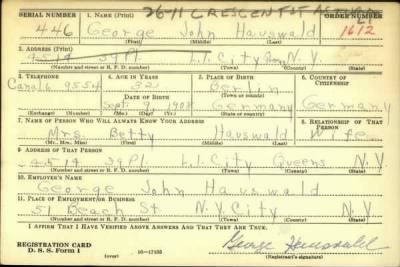 26-11 CRESCENT ST ASTORIA
SERIAL NUMBER 1. NAME (Print) ORDER NUMBER
446 George John Hauswald 1612
(First) (Middle) (Last)
2. ADDRESS (Print)
4519 39 Pl. L.I. City N.Y.
(Number and street or R. F. D. number) (Town) (County) (State)
3. TELEPHONE 4. AGE IN YEARS 5. PLACE OF BIRTH 6. COUNTRY OF CITIZENSHIP
Canal 6 9554 32 Berlin
DATE OF BIRTH (Town or county)
Sept. 9, 1908 Germany Germany
(Exchange) (Number) (Mo.) (Day) (Yr.) (State or country)
7. NAME OF PERSON WHO WILL ALWAYS KNOW YOUR ADDRESS 8. RELATIONSHIP OF THAT PERSON
Mrs. Betty Hauswald Wife
(Mr., Mrs., Miss) (First) (Middle) (Last)
9. ADDRESS OF THAT PERSON
4519 39 Pl. L.I. City Queens N.Y.
(Number and street or R. F. D. number) (Town) (County) (State)
10. EMPLOYER'S NAME
George John Hauswald
11. PLACE OF EMPLOYMENT OR BUSINESS
51 Beach St N.Y City N.Y
(Number and street or R. F. D. number) (Town) (County) (State)
I AFFIRM THAT I HAVE VERIFIED ABOVE ANSWERS AND THAT THEY ARE TRUE.
REGISTRATION CARD
D. S. S. Form 1 16-17105 George Hauswald
(over) (Registrant's signature)